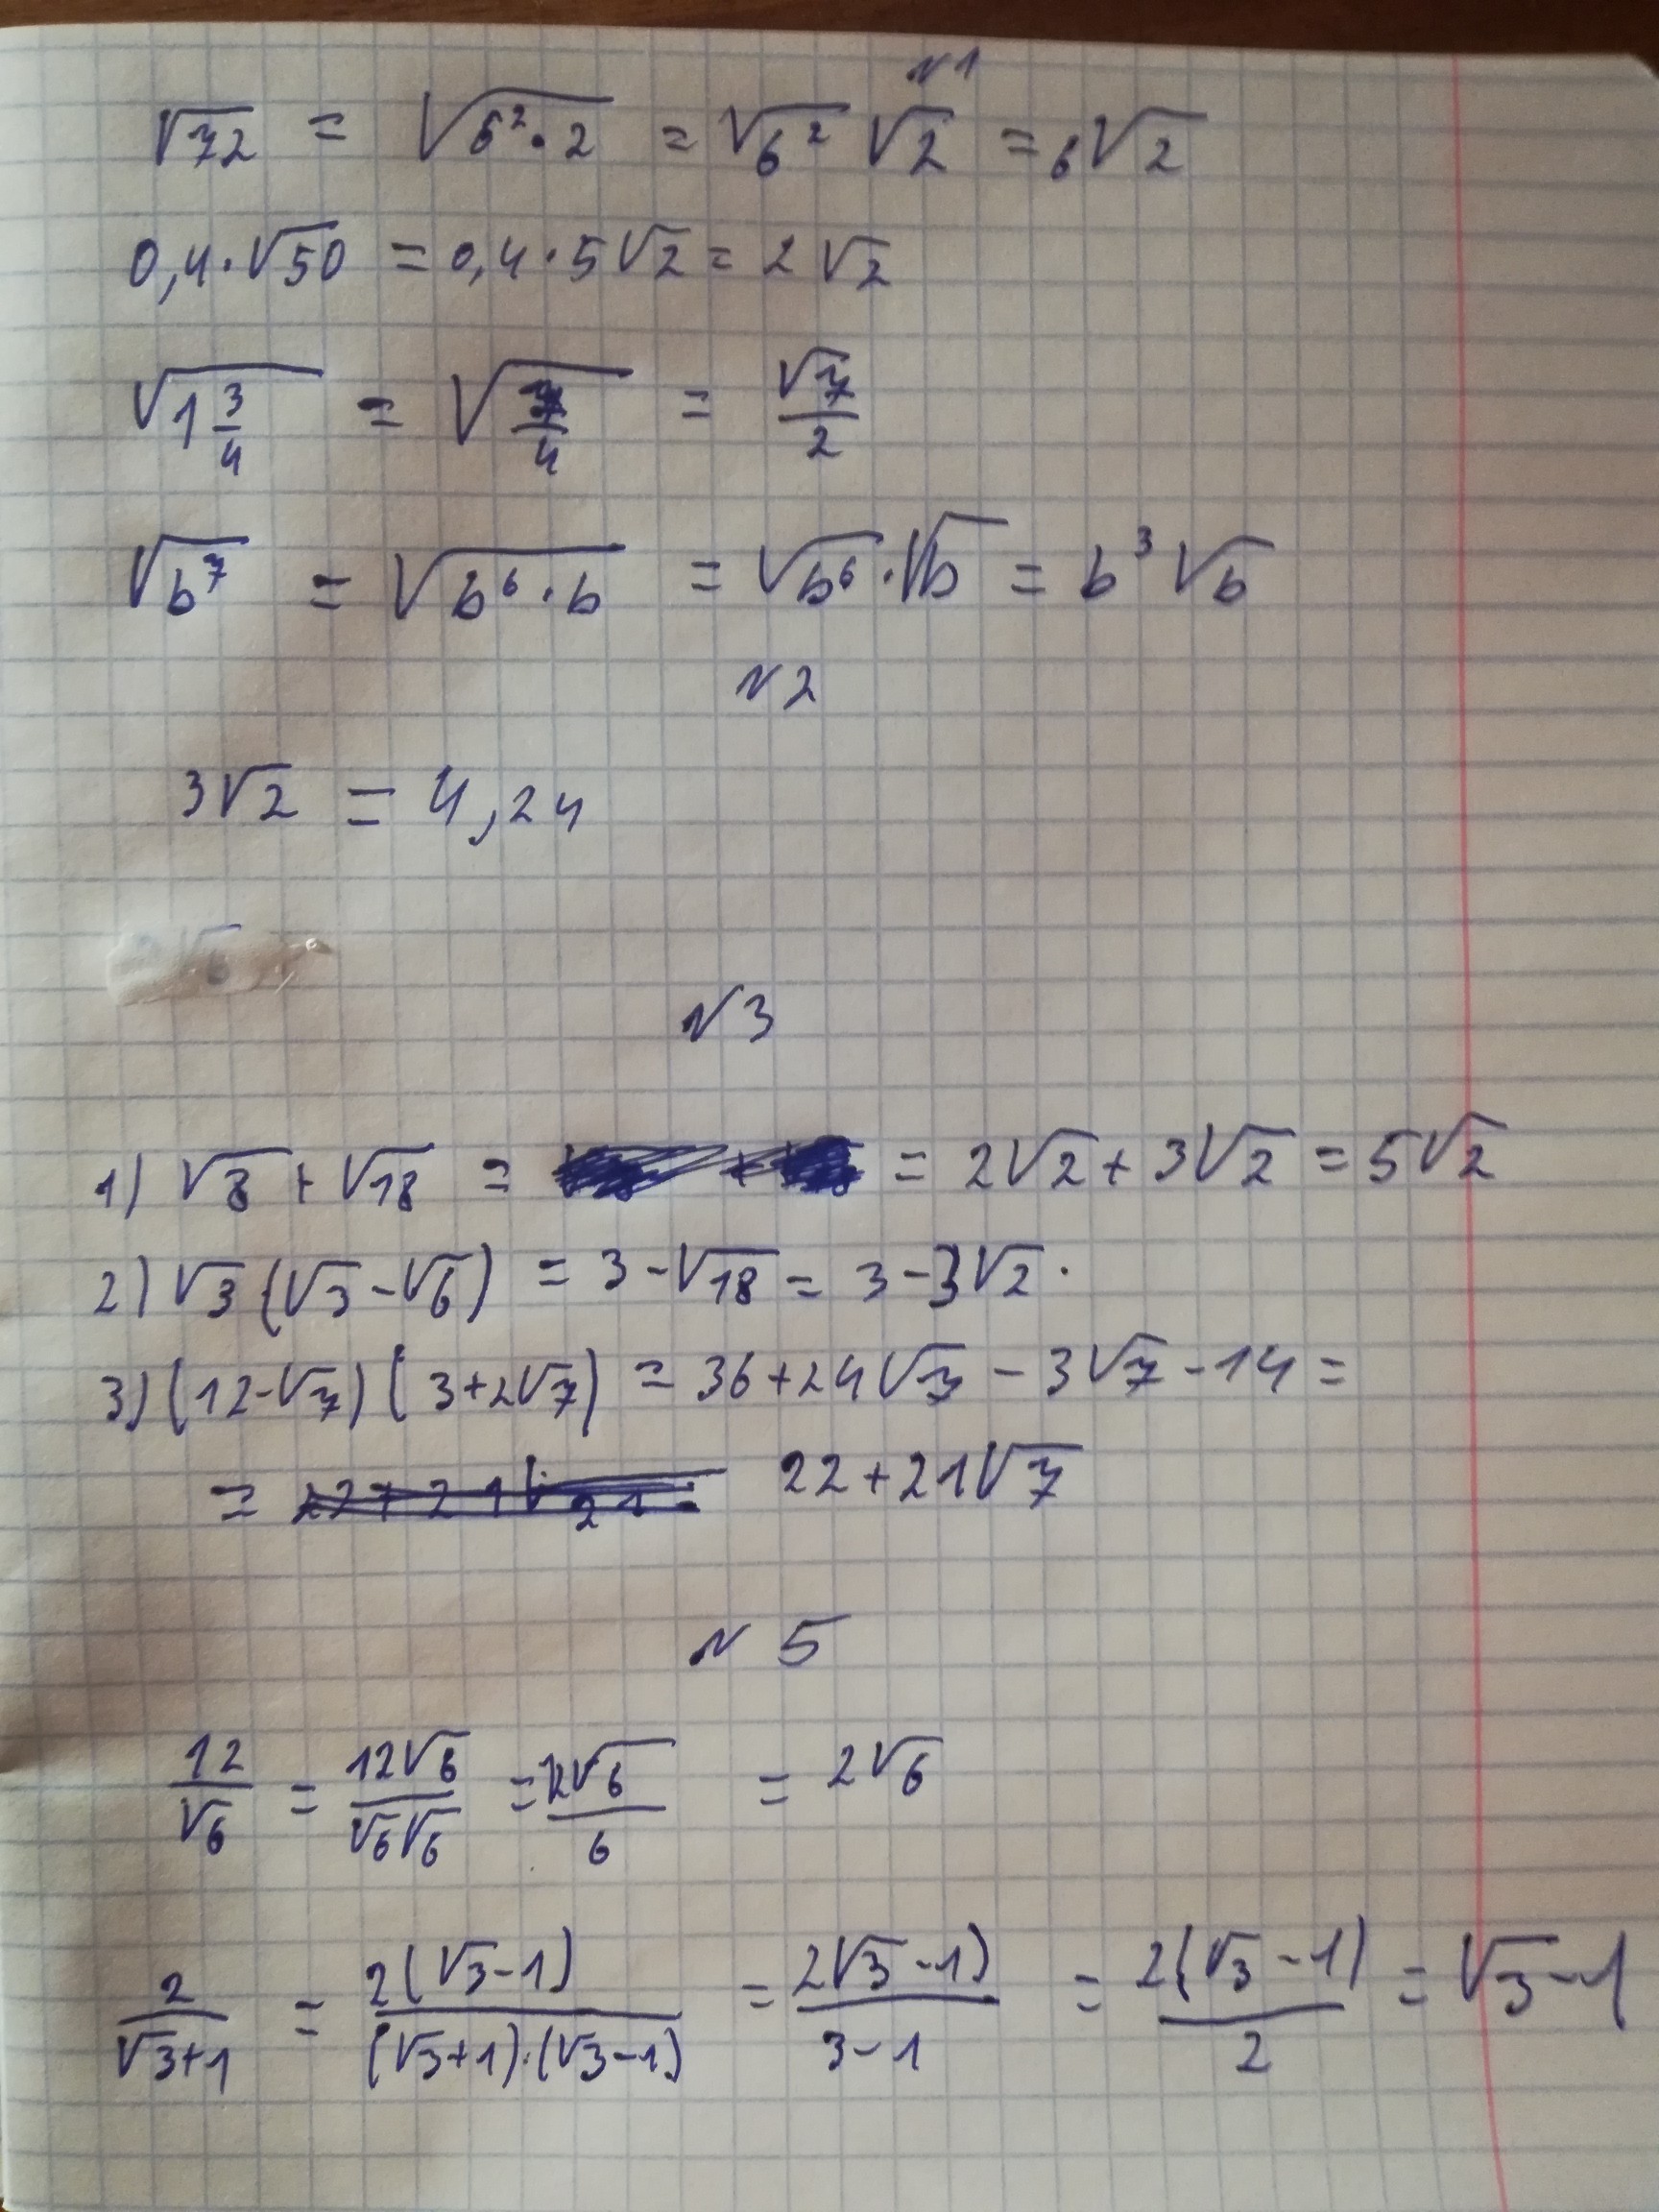 N1
√72 = √(6² · 2) = √6² √2 = 6√2
0,4 · √50 = 0,4 · 5√2 = 2√2
√(1 3/4) = √(7/4) = √7/2
√b⁷ = √(b⁶ · b) = √b⁶ · √b = b³√b
N2
3√2 = 4,24
N3
1) √8 + √18 = = 2√2 + 3√2 = 5√2
2) √3 (√3 - √6) = 3 - √18 = 3 - 3√2.
3) (12 - √7) (3 + 2√7) = 36 + 24√7 - 3√7 - 14 =
= 22 + 21√7
N 5
12/√6 = 12√6/(√6√6) = 12√6/6 = 2√6
2/(√3+1) = 2(√3-1)/((√3+1)·(√3-1)) = 2√3-1)/(3-1) = 2(√3-1)/2 = √3-1